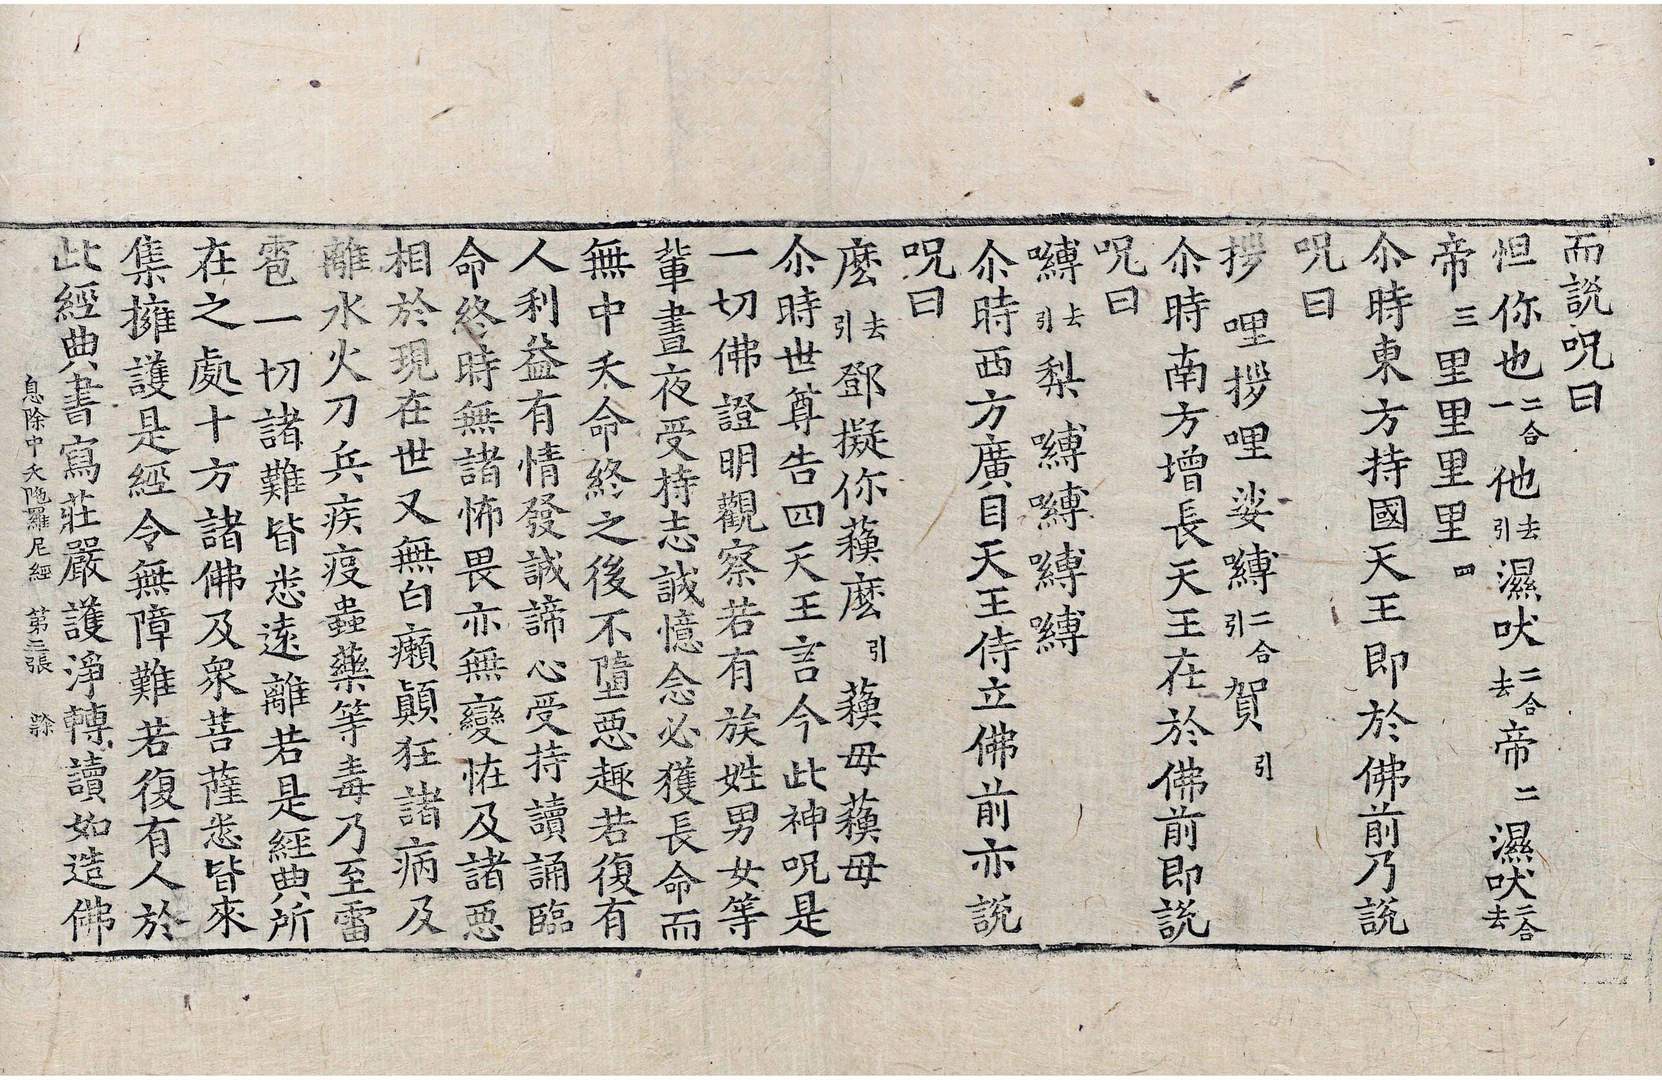 而說呪曰
怛你也二合一他去引濕吠二合去帝二濕吠二合去
帝三里里里里四
尒時東方持國天王即於佛前乃說
呪曰
拶哩拶哩娑嚩二合引賀引
尒時南方增長天王在於佛前即說
呪曰
嚩去引梨嚩嚩嚩嚩
尒時西方廣目天王侍立佛前亦說
呪曰
麽去引鄧擬你蘾麽引蘾毋蘾毋
尒時世尊告四天王言今此神呪是
一切佛證明觀察若有族姓男女等
輩晝夜受持志誠憶念必獲長命而
無中夭命終之後不墮惡趣若復有
人利益有情發誠諦心受持讀誦臨
命終時無諸怖畏亦無變恠及諸惡
相於現在世又無白癩顛狂諸病及
離水火刀兵疾疫蟲藥等毒乃至雷
雹一切諸難皆悉遠離若是經典所
在之處十方諸佛及衆菩薩悉皆來
集擁護是經令無障難若復有人於
此經典書寫莊嚴護淨轉讀如造佛
息除中夭陁羅尼經 第三張